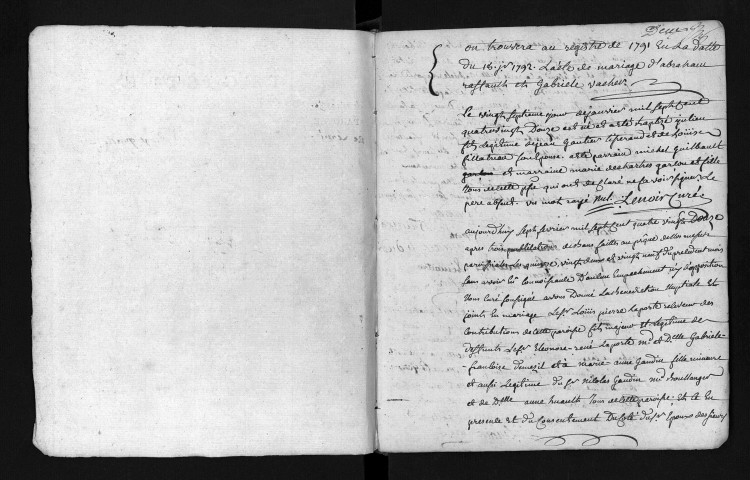 on trouvera au registre de 1791 en la datte
du 16 jer 1792. L'acte de mariage d'abraham
raffault et Gabriele vacher
Le vingt septieme jour de janvier mil sept cent
quatre vingt Douze est né et a ete baptizé
fils legitime de jean Gautier et de Louise
fillatreau son epouse. a ete parrain michel Guilbault
et marraine marie des chartres garçon et fille
tous de cette psse qui ont declaré ne sçavoir signer. Le
pere absent. un mot rayé nul. Lenoir Curé.
aujourd'huy sept fevrier mil sept cent quatre vingt Douze
apres trois publications de bans faittes au prône de nos messes
paroissiales les quinze, vingt deux et vingt neuf du precedent mois
sans avoir eu connoissance D'aucun Empechement ny opposition
Nous Curé soussigné avons Donné La benediction Nuptiale Et
joints En mariage Le sr. Loüis pierre Laporte receveur des
Contributions de cette paroisse fils majeur et legitime de
deffunts Le sr. Eleonore-rené Laporte md et Dlle Gabriele-
françoise Dumesnil et à marie-anne Gaudin fille mineure
et aussi Legitime du sr. Nicolas Gaudin md Boullanger
et de Dlle anne huault tous de cette paroisse. Et ce En
presence et du Consentement Du Coté du sr. Epoux des sieurs